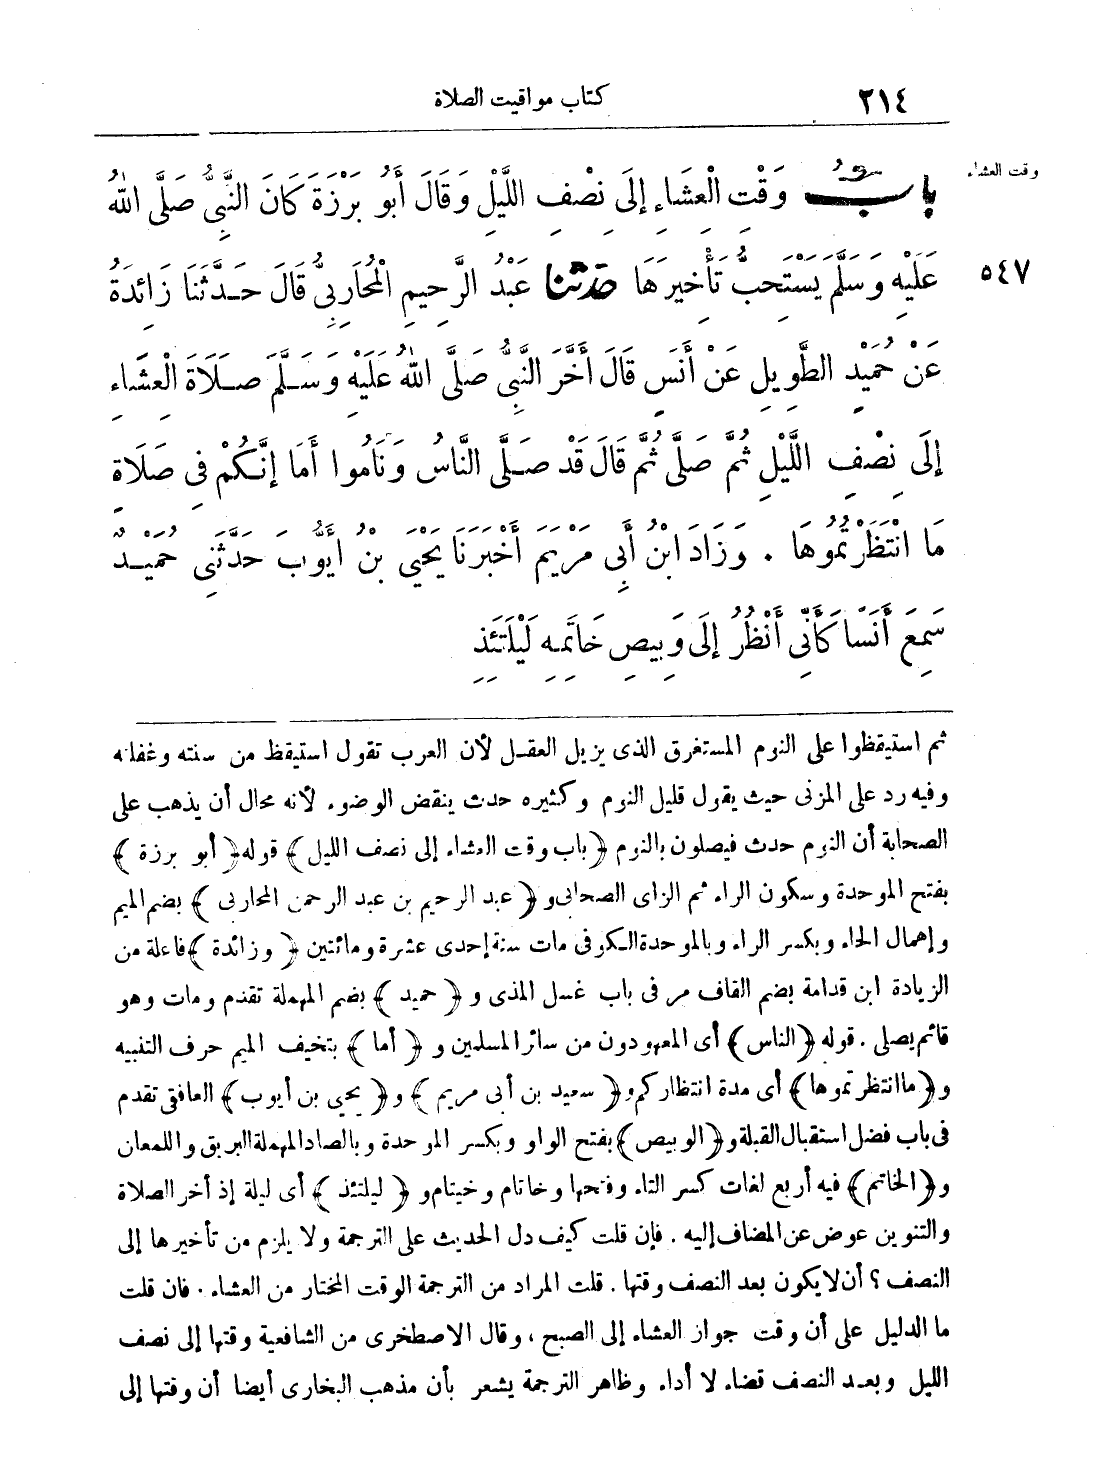 ٢١٤
كتاب مواقيت الصلاة
وقت العشاء
بابُ وَقْتِ الْعِشَاءِ إِلَى نِصْفِ اللَّيْلِ وَقَالَ أَبُو بَرْزَةَ كَانَ النَّبِيُّ صَلَّى اللهُ
٥٤٧
عَلَيْهِ وَسَلَّمَ يَسْتَحِبُّ تَأْخِيرَهَا حَدَّثَنَا عَبْدُ الرَّحِيمِ الْمُحَارِبِيُّ قَالَ حَدَّثَنَا زَائِدَةُ
عَنْ حُمَيْدٍ الطَّوِيلِ عَنْ أَنَسٍ قَالَ أَخَّرَ النَّبِيُّ صَلَّى اللهُ عَلَيْهِ وَسَلَّمَ صَلَاةَ الْعِشَاءِ
إِلَى نِصْفِ اللَّيْلِ ثُمَّ صَلَّى ثُمَّ قَالَ قَدْ صَلَّى النَّاسُ وَنَامُوا أَمَا إِنَّكُمْ فِي صَلَاةٍ
مَا انْتَظَرْتُمُوهَا . وَزَادَ ابْنُ أَبِي مَرْيَمَ أَخْبَرَنَا يَحْيَى بْنُ أَيُّوبَ حَدَّثَنِي حُمَيْدٌ
سَمِعَ أَنَسًا كَأَنِّي أَنْظُرُ إِلَى وَبِيصِ خَاتَمِهِ لَيْلَتَئِذٍ
ثم استيقظوا على النوم المستغرق الذى يزيل العقل لأن العرب تقول استيقظ من سنته وغفلته
وفيه رد على المزنى حيث يقول قليل النوم وكثيره حدث ينقض الوضوء لأنه محال أن يذهب على
الصحابة أن النوم حدث فيصلون بالنوم ﴿باب وقت العشاء إلى نصف الليل﴾ قوله ﴿أبو برزة﴾
بفتح الموحدة وسكون الراء ثم الزاى الصحابى و﴿عبد الرحيم بن عبد الرحمن المحاربى﴾ بضم الميم
وإهمال الحاء وبكسر الراء وبالموحدة الكوفى مات سنة إحدى عشرة ومائتين ﴿وزائدة﴾ فاعلة من
الزيادة ابن قدامة بضم القاف مر فى باب غسل المذى و﴿حميد﴾ بضم المهملة تقدم ومات وهو
قائم يصلى . قوله ﴿الناس﴾ أى المعهودون من سائر المسلمين و﴿أما﴾ بتخيف الميم حرف التنبيه
و﴿ما انتظرتموها﴾ أى مدة انتظاركم و﴿سعيد بن أبى مريم﴾ و﴿يحيى بن أيوب﴾ الغافقى تقدم
فى باب فضل استقبال القبلة و﴿الوبيص﴾ بفتح الواو وبكسر الموحدة وبالصاد المهملة البريق واللمعان
و﴿الخاتم﴾ فيه أربع لغات كسر التاء وفتحها وخاتام وخيتام و﴿ليلتئذ﴾ أى ليلة إذ أخر الصلاة
والتنوين عوض عن المضاف إليه . فإن قلت كيف دل الحديث على الترجمة ولا يلزم من تأخيرها إلى
النصف ؟ أن لا يكون بعد النصف وقتها . قلت المراد من الترجمة الوقت المختار من العشاء . فان قلت
ما الدليل على أن وقت جواز العشاء إلى الصبح ، وقال الاصطخرى من الشافعية وقتها إلى نصف
الليل وبعد النصف قضاء لا أداء وظاهر الترجمة يشعر بأن مذهب البخارى أيضا أن وقتها إلى